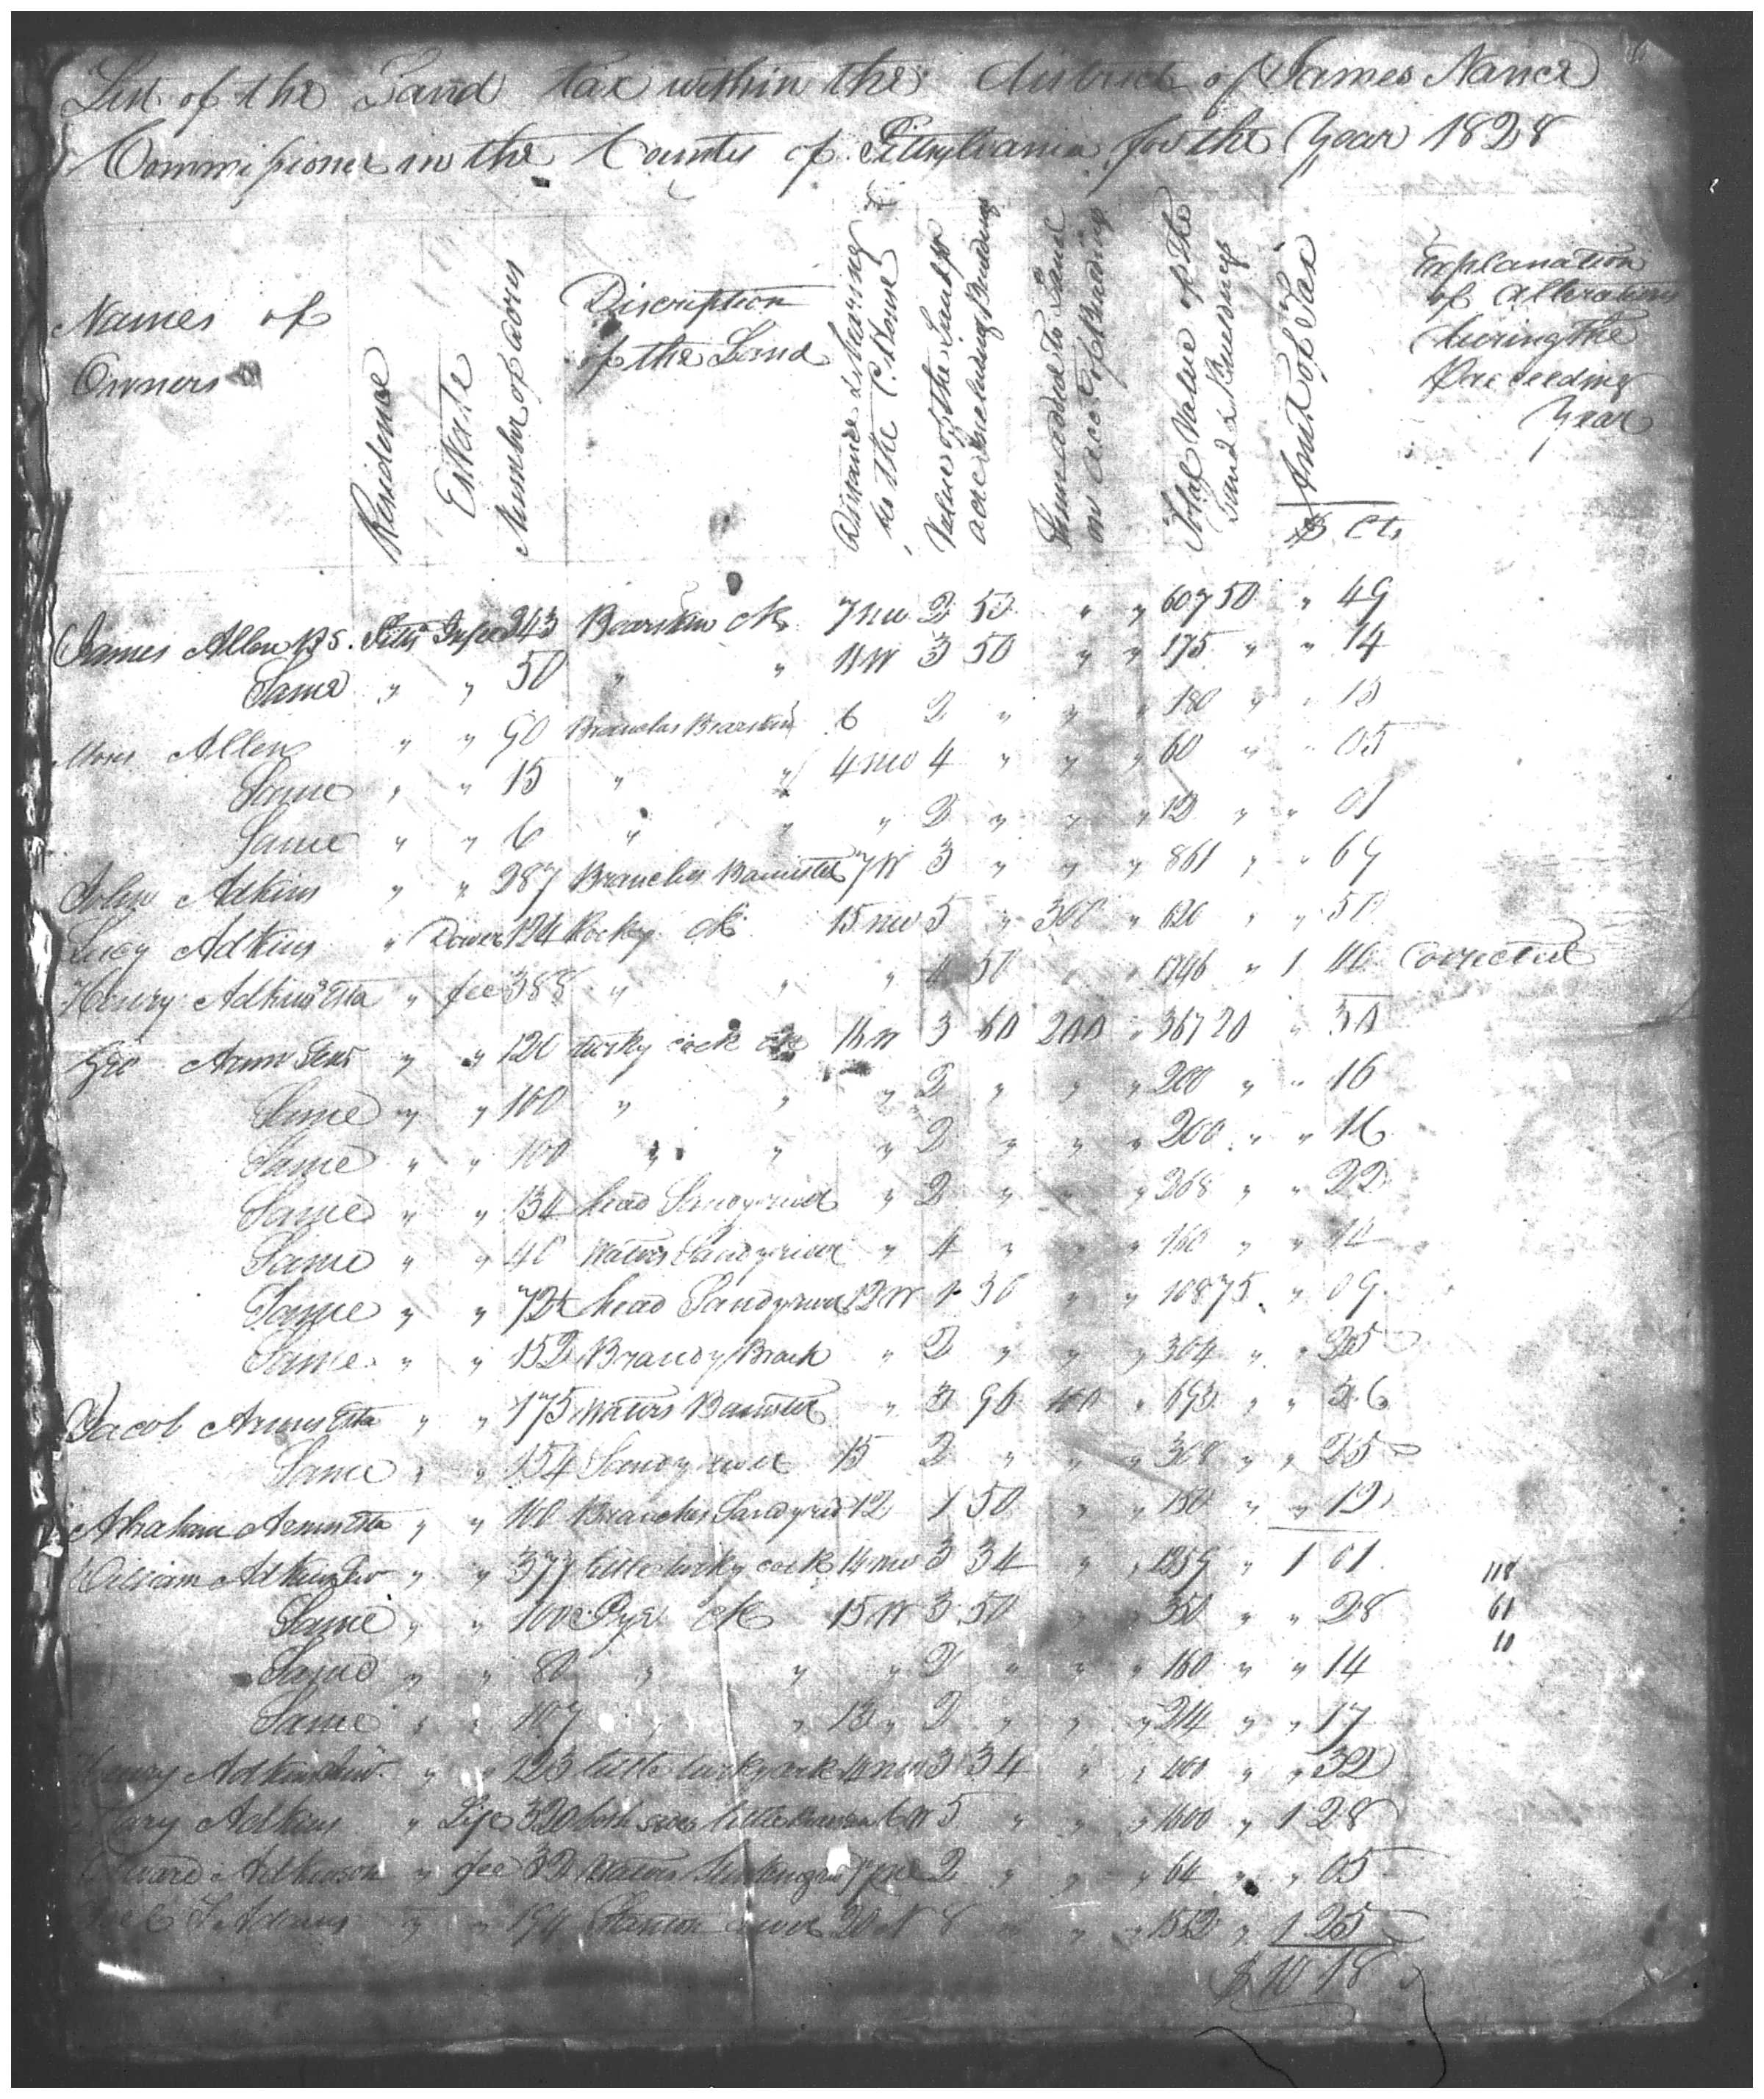 List of the Land tax within the district of James Nance
Commissioner in the County of Pittsylvania for the Year 1828
Names of Owners
Residence
Estate
Number of acres
Discription of the Land
Distance & bearing to the C. House
Value of the Land pr acre including Buildings
Sum added to Land on acct of Buildings
Total Value of the Land & Buildings
Amt of Tax
$ Cts
Explanation of alterations during the Preceeding Year
James Allen B S. Pitts In fee 243 Bearskin ck 7 NW 2 50 " " 607 50 " 49
Same " " 50 " " 11 W 3 50 " " 175 " " 14
Allen " " 90 Branches Bearskin 6 2 " " " 180 " " 15
Same " " 15 " " 4 NW 4 " " " 60 " " 05
Same " " 6 " " " 2 " " " 12 " " 01
John Adkins " " 287 Branches Banister 7 W 3 " " " 861 " " 69
Lucy Adkins " Dower 124 Rocky ck 15 NW 5 " 300 " 620 " " 50
Henry Adkins Esta " fee 388 " " " 4 50 " " 1746 " 1 40 Corrected
Geo " " 120 turky cock ck 16 W 3 60 200 " 367 20 " 30
Same " " 100 " " " 2 " " " 200 " " 16
Same " " 100 " " " 2 " " " 200 " " 16
Same " " 134 head Sandy river " 2 " " " 268 " " 22
Same " " 40 waters Sandy river " 4 " " " 160 " "
Same " " 72½ head Sandy river 12 W 1 50 " " 108 75 " 09
Same " " 152 Brandy Brach " 2 " " " 304 " " 25
Jacob Arms Esta " " 175 waters Banister " 3 96 400 " 693 " " 56
Same " " 154 Sandy river 15 2 " " " 308 " " 25
Abraham Arms Esta " " 100 Branches Sandy rivr 12 1 50 " " 150 " " 12
William Adkins Snr " " 377 little turky cock 14 NW 3 34 " " 1259 " 1 01 118
Same " " 100 Pye ck 15 W 3 50 350 " " 28 61
Same " " 80 " " " 2 " " " 160 " " 14 10
Same " " 107 " " 13 " 2 " " " 214 " " 17
Henry Adkins Junr " " 123 little turky cock 14 NW 3 34 " " 400 " " 32
Mary Adkins " Life 320 both sides little 6 W 5 " " " 1600 " 1 28
Edward Adkinson " fee 32 waters 7 NE 2 " " " 64 " " 05
Joel T. Adams " " 194 Stanton river 20 N 8 " " " 1552 " 1 25
$ 10 18